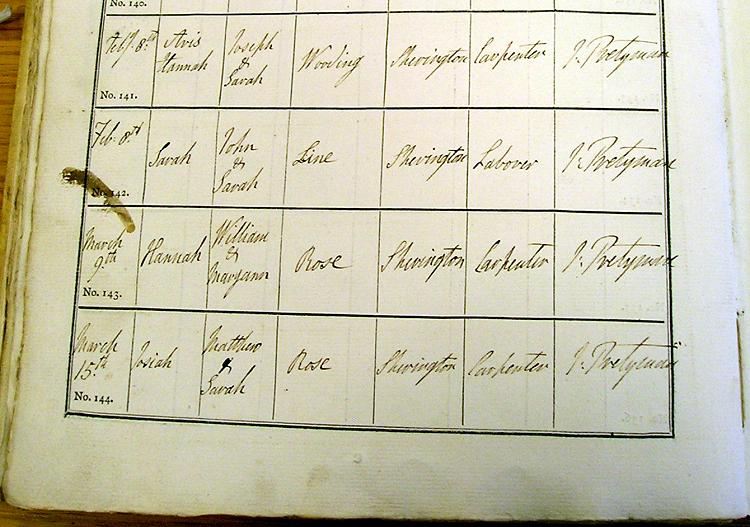 No. 140.
Feby. 8th Avis Hannah Joseph & Sarah Wooding Sherington Carpenter J. Pretyman
No. 141.
Feb. 8th Sarah John & Sarah Line Sherington Labourer J. Pretyman
No. 142.
March 9th Hannah William & Maryann Rose Sherington Carpenter J. Pretyman
No. 143.
March 15th Josiah Matthew & Sarah Rose Sherington Carpenter J. Pretyman
No. 144.